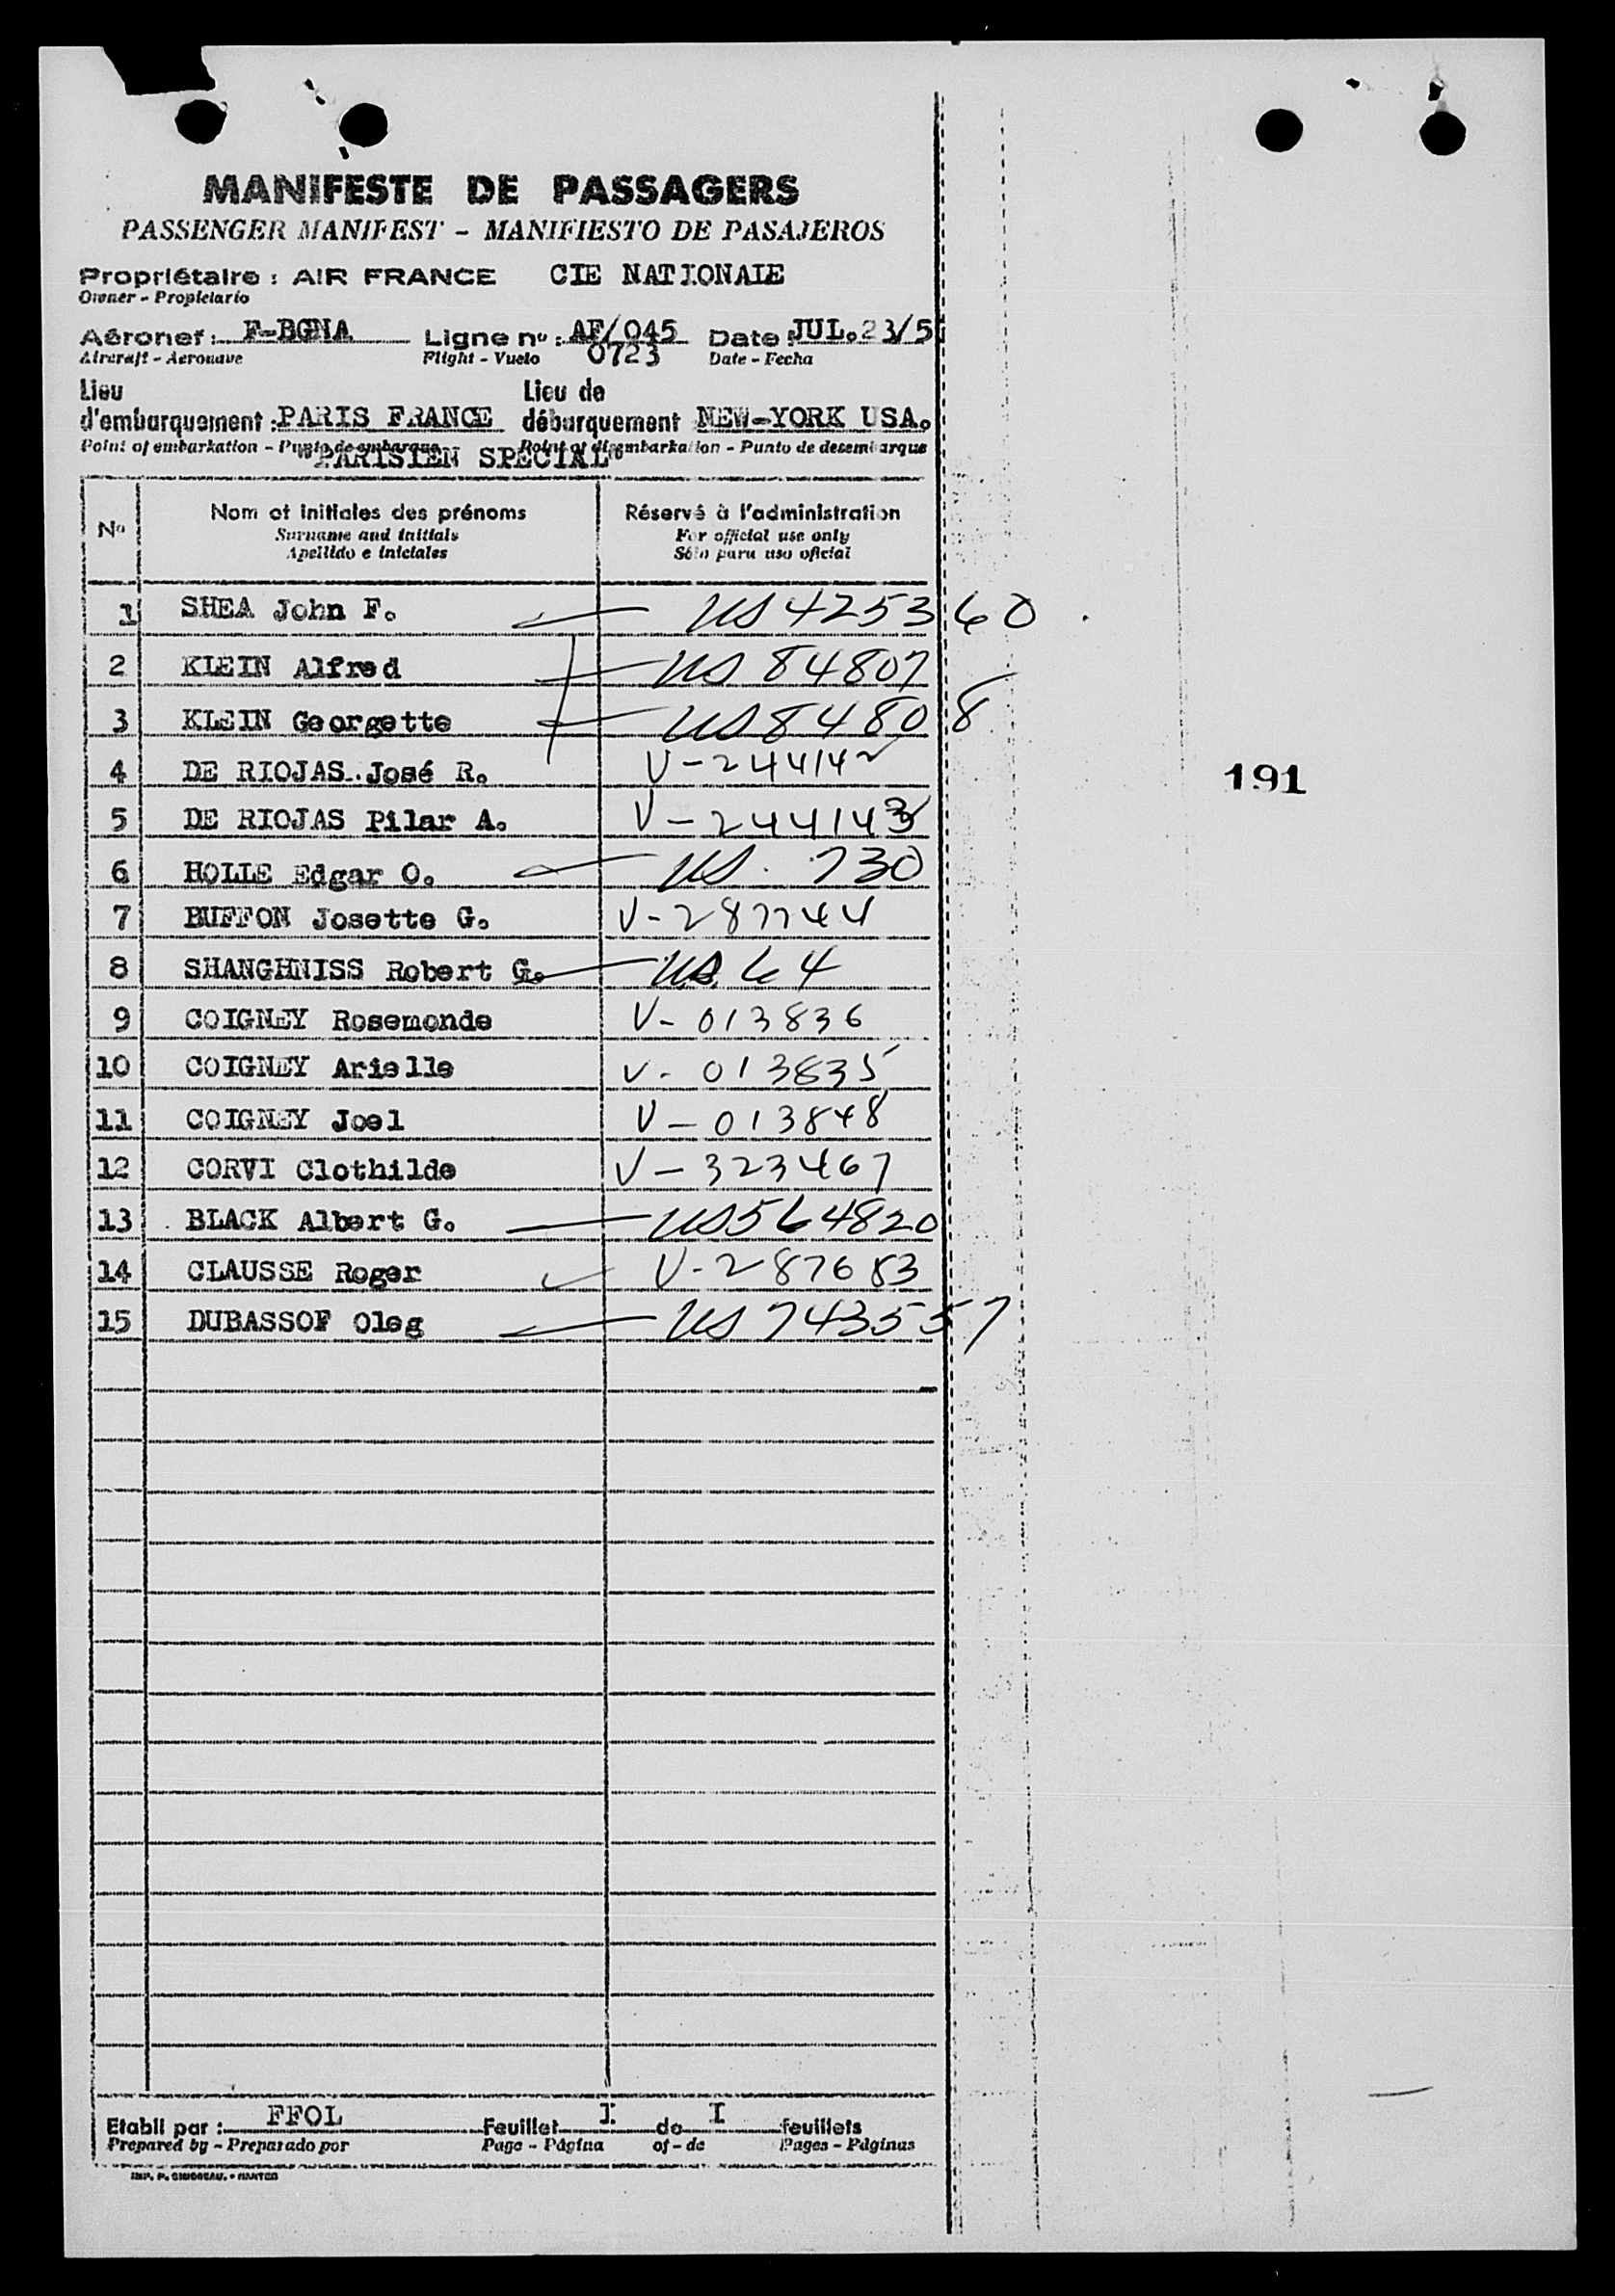 MANIFESTE DE PASSAGERS
PASSENGER MANIFEST - MANIFIESTO DE PASAJEROS
Propriétaire : AIR FRANCE CIE NATIONALE
Owner - Propietario
Aéronef : F-BGNA Ligne nº : AF/045 Date : JUL.23/5
Aircraft - Aeronave Flight - Vuelo 0723 Date - Fecha
Lieu Lieu de
d'embarquement : PARIS FRANCE débarquement NEW-YORK USA.
Point of embarkation - Punto de embarque Point of disembarkation - Punto de desembarque
"PARISIEN SPECIAL"
Nº Nom et initiales des prénoms Réservé à l'administration
Surname and initials For official use only
Apellido e iniciales Sólo para uso oficial
1 SHEA John F. US 425360
2 KLEIN Alfred US 84807
3 KLEIN Georgette US 84808
4 DE RIOJAS José R. V-244142
5 DE RIOJAS Pilar A. V-244143
6 HOLLE Edgar O. US. 730
7 BUFFON Josette G. V-287744
8 SHANGHNISS Robert G. US 64
9 COIGNEY Rosemonde V-013836
10 COIGNEY Arielle V-013835
11 COIGNEY Joel V-013848
12 CORVI Clothilde V-323467
13 BLACK Albert G. US 564820
14 CLAUSSE Roger V-287683
15 DUBASSOF Oleg US 743557
191
Etabli par : FFOL Feuillet I de I feuillets
Prepared by - Preparado por Page - Página of - de Pages - Páginas